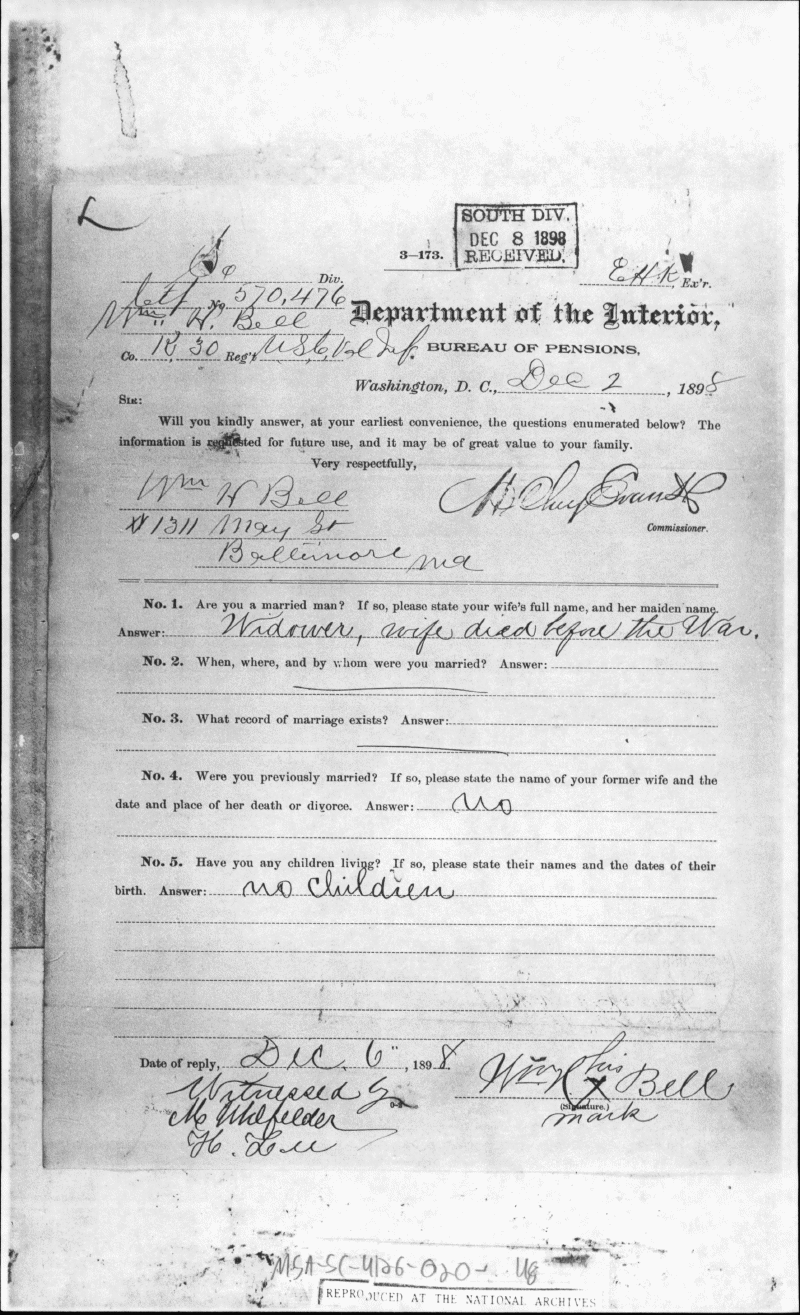 L
SOUTH DIV.
DEC 8 1898
RECEIVED.
3—173.
So Div.
E H K Ex'r.
Ctf No. 570,476
Wm H. Bell
Department of the Interior,
Co. K, 30 Reg't U.S.C. Vol Inf.
BUREAU OF PENSIONS,
Washington, D. C., Dec 2, 1898
SIR:
Will you kindly answer, at your earliest convenience, the questions enumerated below? The
information is requested for future use, and it may be of great value to your family.
Very respectfully,
Wm H Bell
H Clay Evans
# 1311 May St
Commissioner.
Baltimore Md
No. 1. Are you a married man? If so, please state your wife's full name, and her maiden name.
Answer: Widower, wife died before the War.
No. 2. When, where, and by whom were you married? Answer:
No. 3. What record of marriage exists? Answer:
No. 4. Were you previously married? If so, please state the name of your former wife and the
date and place of her death or divorce. Answer: no
No. 5. Have you any children living? If so, please state their names and the dates of their
birth. Answer: no children
Date of reply, Dec. 6", 1898
Wm H his X Bell
(Signature.)
mark
Witnessed by
M Uhlfelder
H.
MSA-SC-4126-020- Ug
REPRODUCED AT THE NATIONAL ARCHIVES